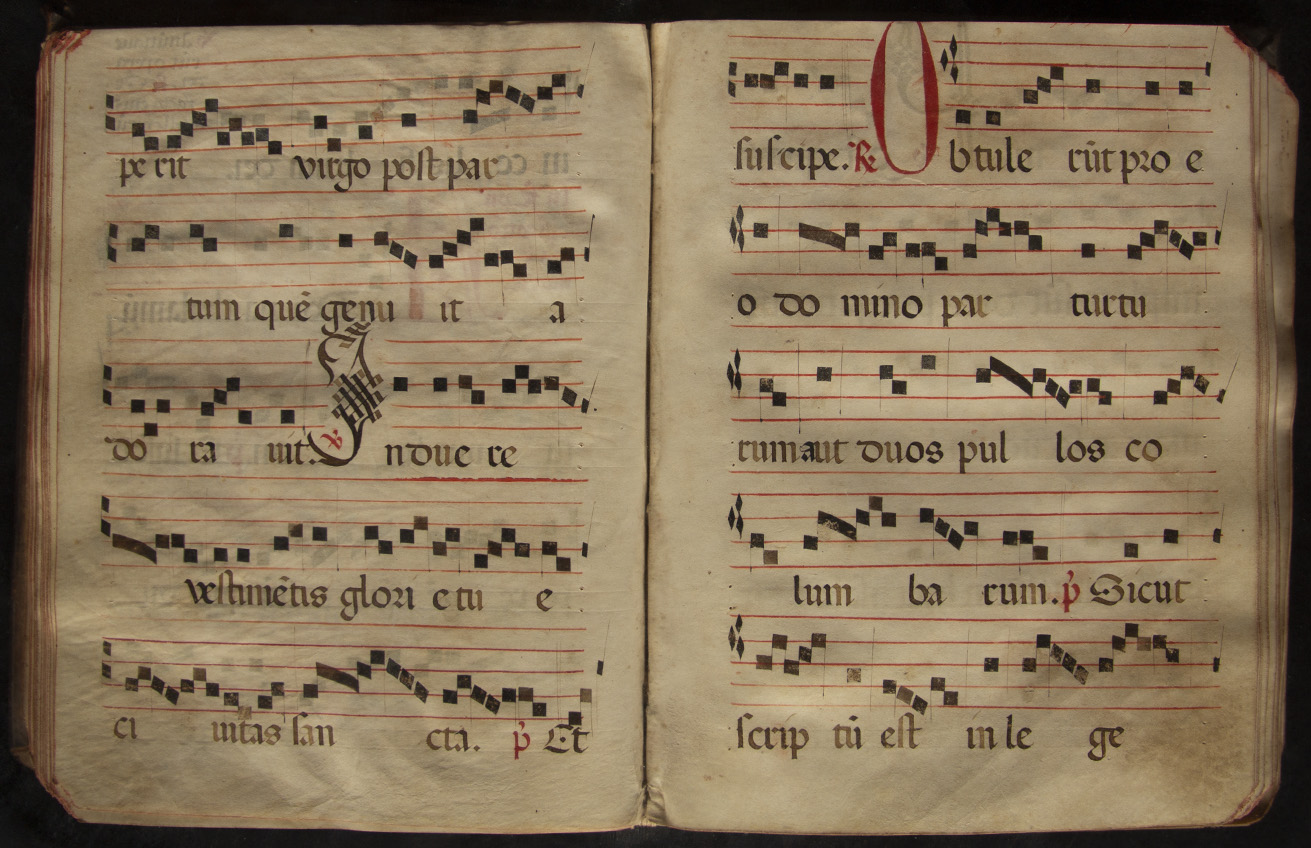 pe rit virgo post par
tum quē genu it a
do ra uit. ℣ Induere
vestimētis glori e tu e
ci uitas san cta. p̄ Et
suscipe. ℟ Obtule rūt pro e
o do mino par turtu
rum aut duos pul los co
lum ba rum. p̄ Sicut
scrip tū est in le ge